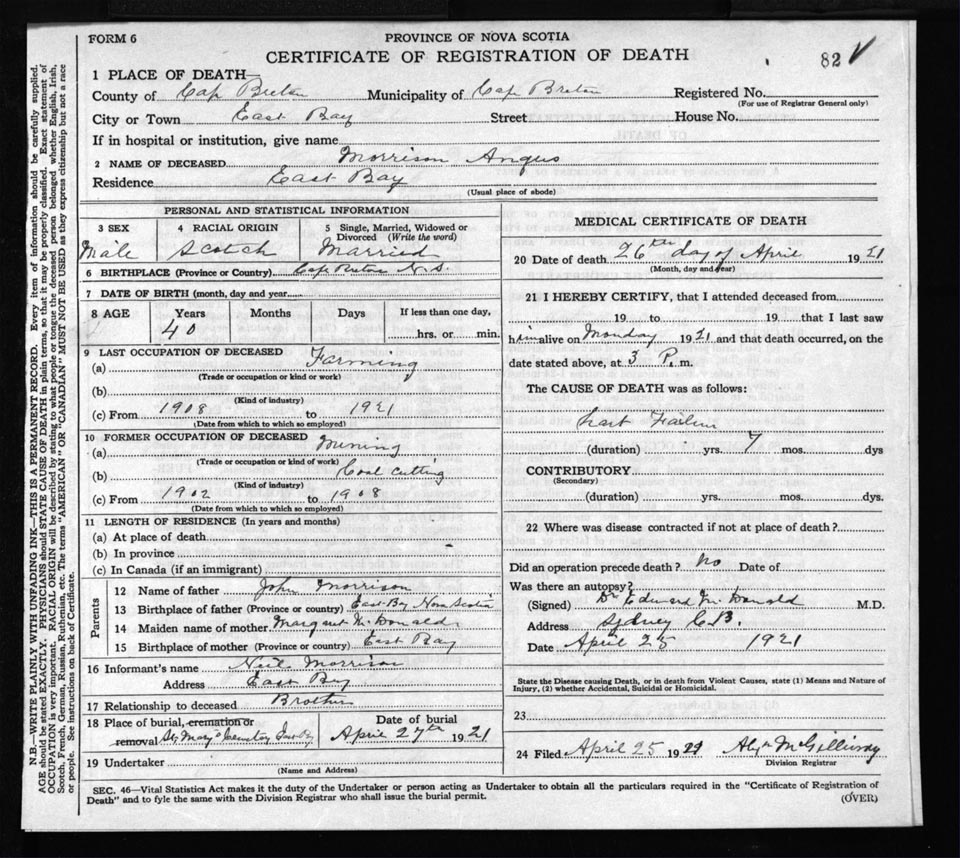 FORM 6
PROVINCE OF NOVA SCOTIA
CERTIFICATE OF REGISTRATION OF DEATH
82
1 PLACE OF DEATH—
County of Cape Breton Municipality of Cape Breton Registered No.
(For use of Registrar General only)
City or Town East Bay Street House No.
If in hospital or institution, give name
2 NAME OF DECEASED Morrison Angus
Residence East Bay
(Usual place of abode)
PERSONAL AND STATISTICAL INFORMATION
3 SEX 4 RACIAL ORIGIN 5 Single, Married, Widowed or
Divorced (Write the word)
Male Scotch Married
6 BIRTHPLACE (Province or Country) Cape Breton N.S.
7 DATE OF BIRTH (month, day and year)
8 AGE Years Months Days If less than one day,
40 hrs. or min.
9 LAST OCCUPATION OF DECEASED
(a) Farming
(Trade or occupation or kind or work)
(b)
(Kind of industry)
(c) From 1908 to 1921
(Date from which to which so employed)
10 FORMER OCCUPATION OF DECEASED
(a) Mining
(Trade or occupation or kind of work)
(b) Coal cutting
(Kind of industry)
(c) From 1902 to 1908
(Date from which to which so employed)
11 LENGTH OF RESIDENCE (In years and months)
(a) At place of death
(b) In province
(c) In Canada (if an immigrant)
Parents
12 Name of father John Morrison
13 Birthplace of father (Province or country) East Bay Nova Scotia
14 Maiden name of mother Margaret McDonald
15 Birthplace of mother (Province or country) East Bay
16 Informant's name Neil Morrison
Address East Bay
17 Relationship to deceased Brother
18 Place of burial, cremation or Date of burial
removal St Mary's Cemetery East Bay April 27th 1921
19 Undertaker
(Name and Address)
MEDICAL CERTIFICATE OF DEATH
20 Date of death 26th day of April 1921
(Month, day and year)
21 I HEREBY CERTIFY, that I attended deceased from
19 to 19 that I last saw
him alive on Monday 1921 and that death occurred, on the
date stated above, at 3 P. m.
The CAUSE OF DEATH was as follows:
Heart Failure
(duration) yrs. 7 mos. dys
CONTRIBUTORY
(Secondary)
(duration) yrs. mos. dys.
22 Where was disease contracted if not at place of death?
Did an operation precede death? No Date of
Was there an autopsy?
(Signed) Dr Edward McDonald M.D.
Address Sydney C.B.
Date April 25 1921
State the Disease causing Death, or in death from Violent Causes, state (1) Means and Nature of
Injury, (2) whether Accidental, Suicidal or Homicidal.
23
24 Filed April 25 1921 McGillivray
Division Registrar
SEC. 46—Vital Statistics Act makes it the duty of the Undertaker or person acting as Undertaker to obtain all the particulars required in the "Certificate of Registration of
Death" and to fyle the same with the Division Registrar who shall issue the burial permit.
(OVER)
N.B.—WRITE PLAINLY WITH UNFADING INK—THIS IS A PERMANENT RECORD. Every item of information should be carefully supplied.
AGE should be stated EXACTLY. PHYSICIANS should STATE CAUSE OF DEATH in plain terms, so that it may be properly classified. Exact statement of
OCCUPATION is very important. RACIAL ORIGIN will be described by stating to what people or tongue the deceased person belonged whether English, Irish,
Scotch, French, German, Russian, Ruthenian, etc. The terms "AMERICAN" OR "CANADIAN" MUST NOT BE USED as they express citizenship but not a race
or people. See instructions on back of Certificate.